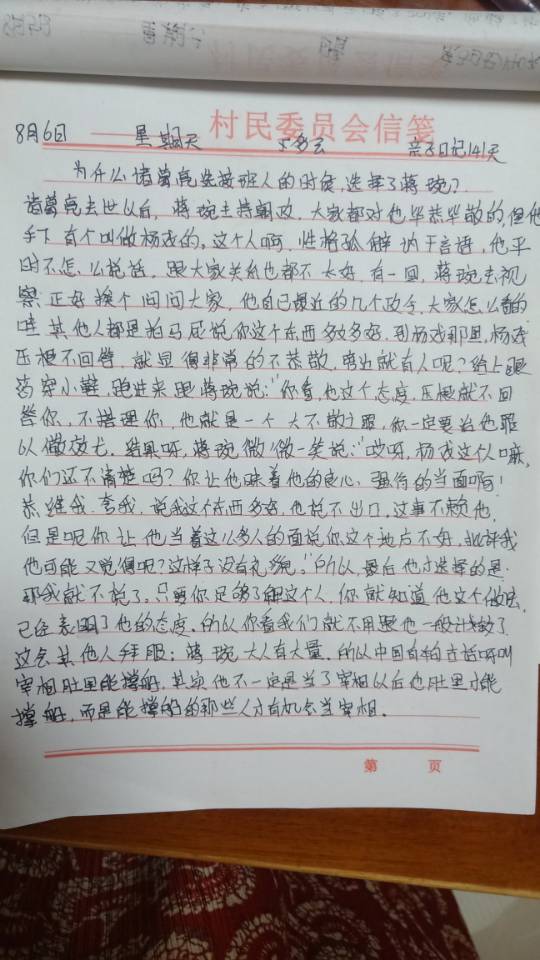 村民委员会信笺
8月6日 星期天 多云 亲子日记141天
为什么诸葛亮选接班人的时候,选择了蒋琬?
诸葛亮去世以后,蒋琬主持朝政,大家都对他毕恭毕敬的,但他
手下有个叫做杨戏的,这个人啊,性格孤僻讷于言语,他平
时不怎么说话,跟大家关系也都不太好,有一回,蒋琬去视
察正好挨个问问大家,他自己最近的几个政令,大家怎么看的
哇,其他人都是拍马屁说你这个东西多好多好,到杨戏那里,杨戏
压根不回答,就显得非常的不恭敬,旁边就有人呢?给上眼
药穿小鞋,跑过来跟蒋琬说:“你看,他这个态度,压根就不回
答你,不搭理你,他就是一个大不敬之罪,你一定要治他罪
以儆效尤,结果呀,蒋琬微微一笑说:“哎呀,杨戏这个人嘛,
你们还不清楚吗?你让他昧着他的良心,强行的当面啊!
恭维我,夸我,说我这个东西多好,他说不出口,这事不赖他,
但是呢你让他当着这么多人的面说你这个地方不好,批评我
他可能又觉得呢?这样子没有礼貌,”所以,最后他才选择的是
那我就不说了,只要你足够了解这个人,你就知道他这个做法,
已经表明了他的态度,所以你看我们就不用跟他一般计较了
这会其他人拜服:蒋琬大人有大量,所以中国有句古话呀叫
宰相肚里能撑船,其实他不一定是当了宰相以后他肚里才能
撑船,而是能撑船的那些人才有机会当宰相。
第 页